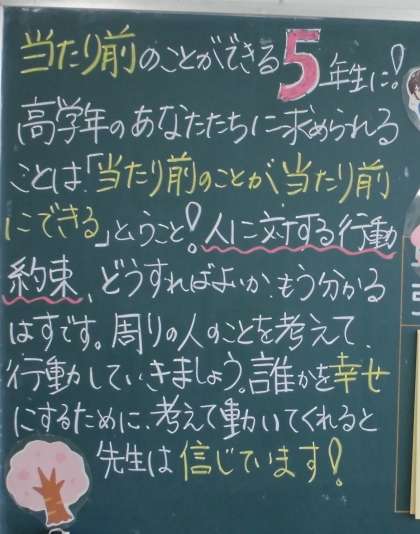 当たり前のことができる5年生に!
高学年のあなたたちに求められる
ことは「当たり前のことが当たり前
にできる」ということ!人に対する行動
約束、どうすればよいか、もう分かる
はずです。周りの人のことを考えて、
行動していきましょう。誰かを幸せ
にするために、考えて動いてくれると
先生は信じています!